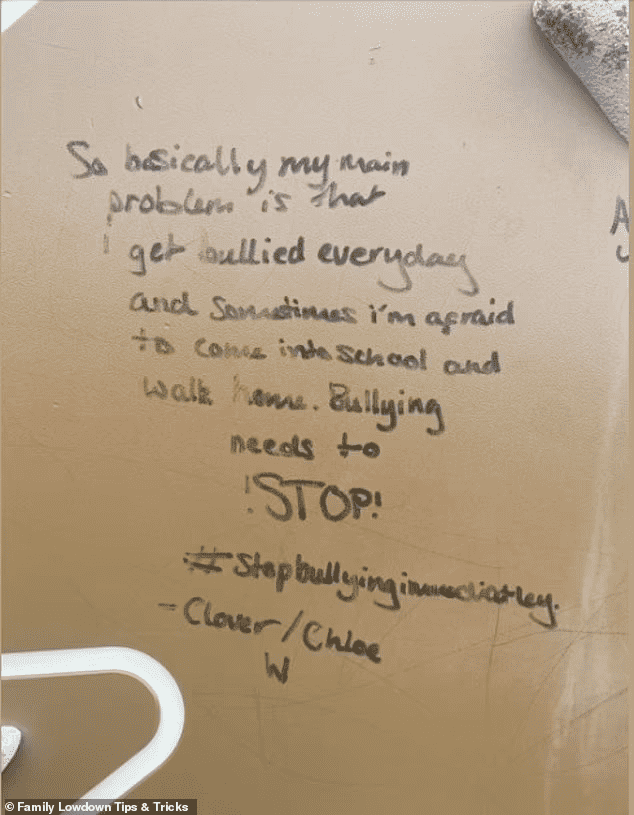 So basically my main
problem is that
i get bullied everyday
and Sometimes i'm afraid
to come into school and
walk home. Bullying
needs to
!STOP!
#Stopbullyingimmediatley.
- Clover/Chloe
W
A
© Family Lowdown Tips & Tricks